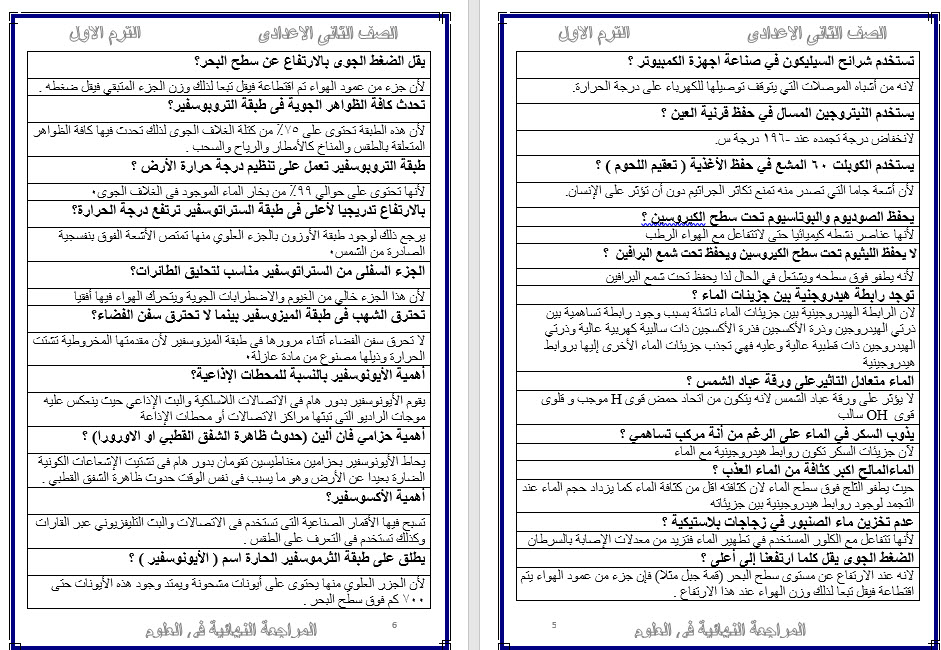 الصف الثاني الاعدادي الترم الاول
تستخدم شرائح السيليكون في صناعة اجهزة الكمبيوتر ؟
لانه من أشباه الموصلات التي يتوقف توصيلها للكهرباء على درجة الحرارة.
يستخدم النيتروجين المسال في حفظ قرنية العين ؟
لانخفاض درجة تجمده عند -١٩٦ درجة س.
يستخدم الكوبلت ٦٠ المشع في حفظ الأغذية ( تعقيم اللحوم ) ؟
لأن أشعة جاما التي تصدر منه تمنع تكاثر الجراثيم دون أن تؤثر على الإنسان.
يحفظ الصوديوم والبوتاسيوم تحت سطح الكيروسين ؟
لأنها عناصر نشطه كيميائيا حتى لاتتفاعل مع الهواء الرطب
لا يحفظ الليثيوم تحت سطح الكيروسين ويحفظ تحت شمع البرافين ؟
لأنه يطفو فوق سطحه ويشتعل في الحال لذا يحفظ تحت شمع البرافين
توجد رابطة هيدروجنية بين جزيئات الماء ؟
لان الرابطة الهيدروجينية بين جزيئات الماء ناشئة بسبب وجود رابطة تساهمية بين
ذرتي الهيدروجين وذرة الأكسجين فذرة الأكسجين ذات سالبية كهربية عالية وذرتي
الهيدروجين ذات قطبية عالية وعليه فهي تجذب جزيئات الماء الأخرى إليها بروابط
هيدروجينية
الماء متعادل التاثيرعلى ورقة عباد الشمس ؟
لا يؤثر على ورقة عباد الشمس لانه يتكون من اتحاد حمض قوى H موجب و قلوى
قوى OH سالب
يذوب السكر في الماء على الرغم من أنة مركب تساهمي ؟
لآن جزيئات السكر تكون روابط هيدروجينية مع الماء
الماءالمالح اكبر كثافة من الماء العذب ؟
حيث يطفو الثلج فوق سطح الماء لان كثافته اقل من كثافة الماء كما يزداد حجم الماء عند
التجمد لوجود روابط هيدروجينية بين جزيئاته
عدم تخزين ماء الصنبور في زجاجات بلاستيكية ؟
لأنها تتفاعل مع الكلور المستخدم في تطهير الماء فتزيد من معدلات الإصابة بالسرطان
الضغط الجوى يقل كلما ارتفعنا إلى أعلى ؟
لانه عند الارتفاع عن مستوى سطح البحر (قمة جبل مثلا) فإن جزء من عمود الهواء يتم
اقتطاعة فيقل تبعا لذلك وزن الهواء عند هذا الارتفاع .
5
المراجعة النهائية في العلوم
الصف الثاني الاعدادي الترم الاول
يقل الضغط الجوى بالارتفاع عن سطح البحر؟
لأن جزء من عمود الهواء تم اقتطاعة فيقل تبعا لذلك وزن الجزء المتبقي فيقل ضغطه .
تحدث كافة الظواهر الجوية فى طبقة التروبوسفير؟
لأن هذه الطبقة تحتوى على ٧٥٪ من كتلة الغلاف الجوى لذلك تحدث فيها كافة الظواهر
المتعلقة بالطقس والمناخ كالأمطار والرياح والسحب .
طبقة التروبوسفير تعمل على تنظيم درجة حرارة الأرض ؟
لأنها تحتوى على حوالي ٩٩٪ من بخار الماء الموجود فى الغلاف الجوى٠
بالارتفاع تدريجيا لأعلى فى طبقة الستراتوسفير ترتفع درجة الحرارة؟
يرجع ذلك لوجود طبقة الأوزون بالجزء العلوي منها تمتص الأشعة الفوق بنفسجية
الصادرة من الشمس٠
الجزء السفلى من الستراتوسفير مناسب لتحليق الطائرات؟
لأن هذا الجزء خالي من الغيوم والاضطرابات الجوية ويتحرك الهواء فيها أفقيا
تحترق الشهب فى طبقة الميزوسفير بينما لا تحترق سفن الفضاء؟
لا تحرق سفن الفضاء أثناء مرورها فى طبقة الميزوسفير لأن مقدمتها المخروطية تشتت
الحرارة وذيلها مصنوع من مادة عازلة٠
أهمية الأيونوسفير بالنسبة للمحطات الإذاعية؟
يقوم الأيونوسفير بدور هام فى الاتصالات اللاسلكية والبث الإذاعي حيث ينعكس عليه
موجات الراديو التى تبثها مراكز الاتصالات أو محطات الإذاعة
أهمية حزامي فان ألين (حدوث ظاهرة الشفق القطبي او الاورورا) ؟
يحاط الأيونوسفير بحزامين مغناطيسين تقومان بدور هام فى تشتيت الإشعاعات الكونية
الضارة بعيدا عن الأرض وهو ما يسبب فى نفس الوقت حدوث ظاهرة الشفق القطبي .
أهمية الأكسوسفير؟
تسبح فيها الأقمار الصناعية التى تستخدم فى الاتصالات والبث التليفزيوني عبر القارات
وكذلك تستخدم فى التعرف على الطقس .
يطلق على طبقة الثرموسفير الحارة اسم ( الأيونوسفير ) ؟
لأن الجزر العلوي منها يحتوى على أيونات مشحونة ويمتد وجود هذه الأيونات حتى
٧٠٠ كم فوق سطح البحر .
6
المراجعة النهائية في العلوم